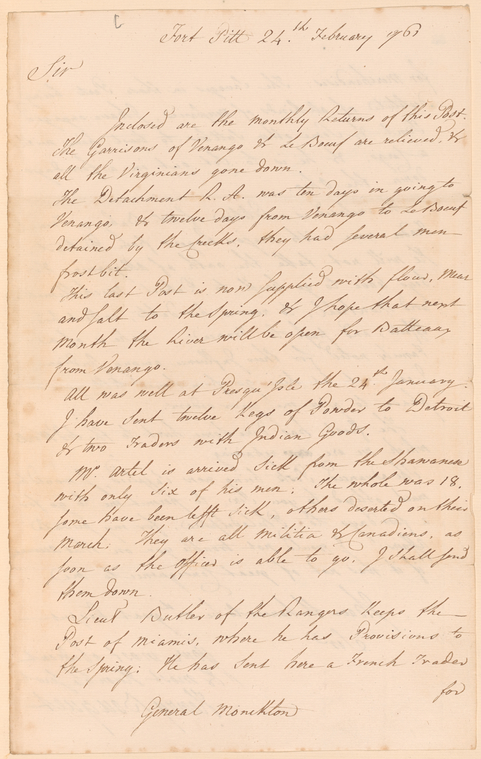 Fort Pitt 24.th February 1761
Sir
Inclosed are the monthly Returns of this Post.
The Garrisons of Venango & Le Bœuf are relieved, &
all the Virginians gone down.
The Detachment R. A. was ten days in going to
Venango, & twelve days from Venango to Le Bœuf
detained by the creeks, they had several men
frostbit.
This last Post is now supplied with flour, Meat
and Salt to the Spring, & I hope that next
Month the River will be open for Batteaux
from Venango.
All was well at Presqu'Isle the 24th January.
I have sent twelve Kegs of Powder to Detroit
& two Traders with Indian Goods.
Mr. Artel is arrived sick from the Shawanese
with only six of his men; The whole was 18,
some have been lefft sick, others deserted on their
March; They are all Militia & Canadiens, as
soon as the officer is able to go, I shall send
them down.
Lieut Butler of the Rangers keeps the
Post of Miamis, where he has Provisions to
the Spring; He has sent here a French Trader
for
General Monckton